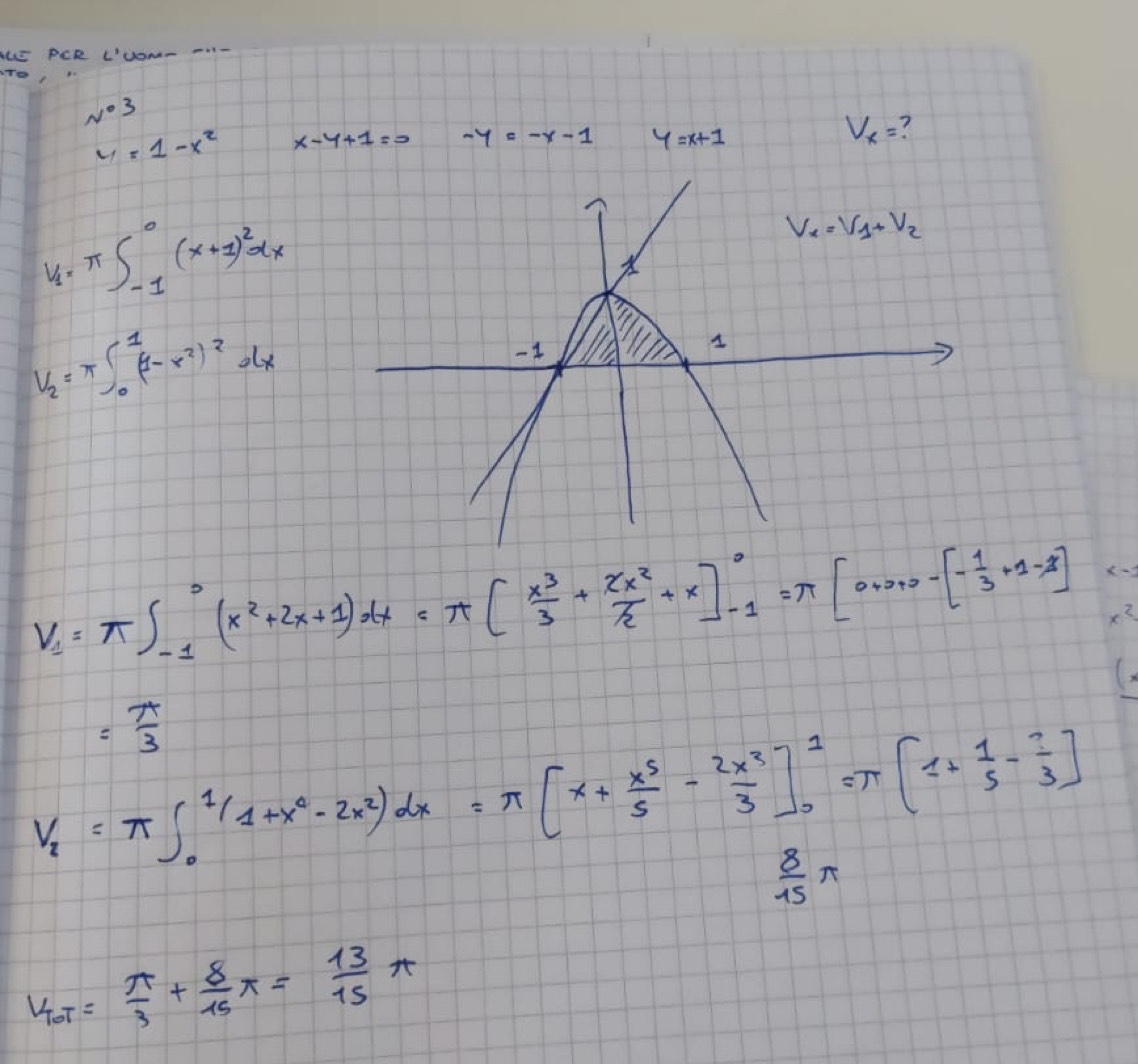 ALE PER L'UOM
TO,
N° 3
y = 1 - x² x - y + 1 = 0 -y = -x - 1 y = x + 1 Vx = ?
Vx = V1 + V2
V1 = π ∫_{-1}^{0} (x+1)² dx
1
-1 1
V2 = π ∫_{0}^{1} (1 - x²)² dx
V1 = π ∫_{-1}^{0} (x² + 2x + 1) dx = π [ x³/3 + 2x²/2 + x ]_{-1}^{0} = π [ 0+0+0 - [ -1/3 + 1 - 1 ]
= π/3
V2 = π ∫_{0}^{1} (1 + x⁴ - 2x²) dx = π [ x + x⁵/5 - 2x³/3 ]_{0}^{1} = π [ 1 + 1/5 - 2/3 ]
8/15 π
VTOT = π/3 + 8/15 π = 13/15 π